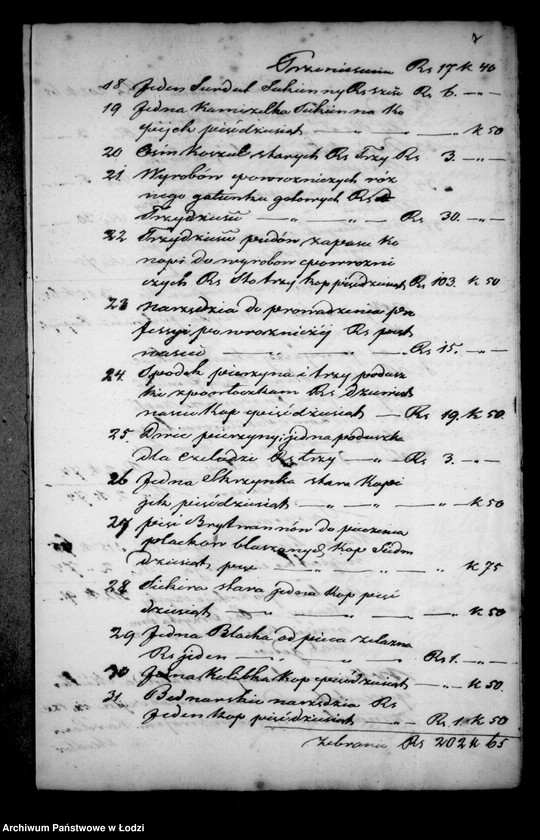 2
Przeniesienie Rs 17 k 40
18 Jeden Surdut Sukienny Rs sześć Rs 6. — „ —
19 Jedna Kamizelka Sukienna Ko
piejek pięśdziesiąt — „ — „ — „ k 50
20 Ośm Koszul starych Rs Trzy Rs 3. — „ —
21. Wyrobów powrozniczych róż
nego gatunku gotowych Rs
Trzydzieści — „ — „ — Rs 30. — „ —
22 Trzydzieści pudów zapasu Ko
nopi do wyrobów powrozni
czych Rs Sto trzy kop pięśdziesiąt Rs 103. k 50
23 Narzędzia do prowadzenia pro
fessyi powrozniczéj Rs piet
nascie — „ — „ — Rs 15. — „ —
24. Spodek pierzyna i trzy podusz
ki z poszłoczkam Rs Dziewięt
nascie kop pięśdziesiąt — Rs 19. k 50.
25. Dwie pierzyny i jedna poduszka
dla czeladzi Rs trzy — „ — Rs 3. — „ —
26 Jedna Skrzynka stara kopi
jek pięśdziesiąt — „ — „ — „ — k 50
27 pięć Brytwannów do pieczenia
plackow blaszanych kop Siedm
dziesiąt pięć — „ — „ — „ k 75
28. Siekiera stara jedna kop pięś
dziesiąt — „ — „ — „ — k 50
29 Jedna Blacha od pieca żelazna
Rs jeden — „ — „ — Rs 1. — „ —
30 Jedna Kolibka kop pięśdziesiąt — „ — k 50.
31. Bednarskie narzędzia Rs
Jeden kop pięśdziesiąt — „ — Rs 1. k 50
zebranie Rs 202 k 65
Archiwum Państwowe w Łodzi